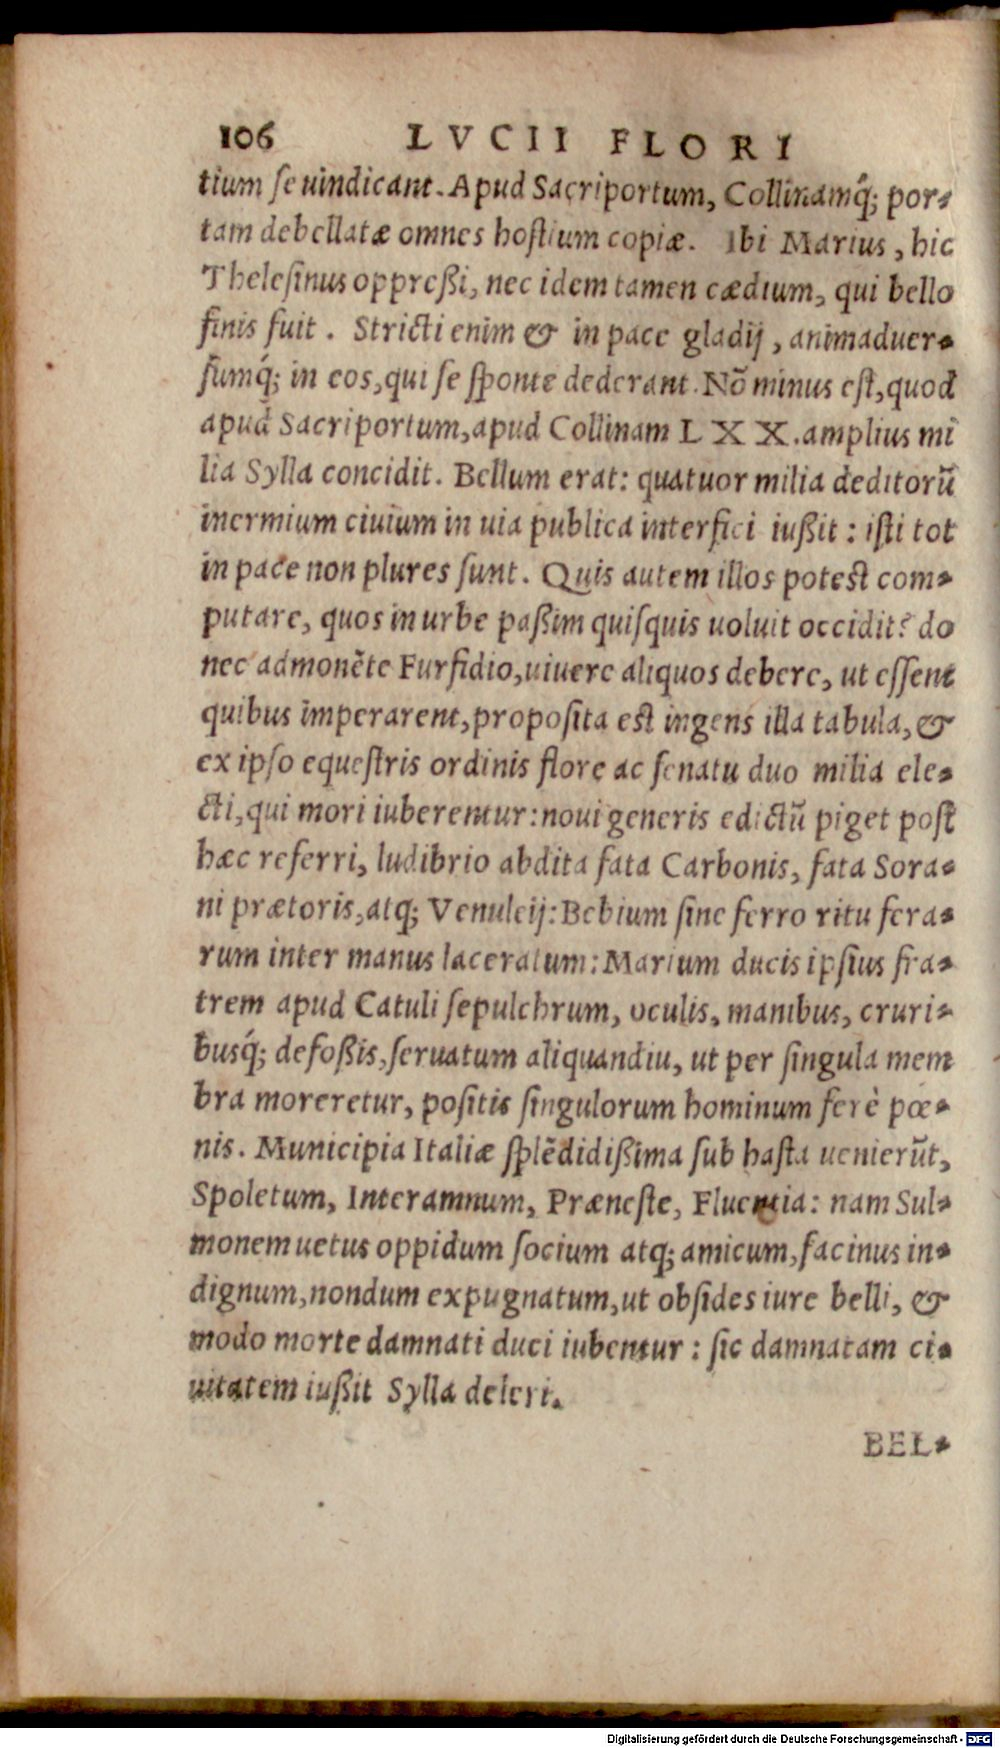 106 LVCII FLORI
tium se uindicant. Apud Sacriportum, Collinamq́; por-
tam debellatæ omnes hostium copiæ. Ibi Marius, hic
Thelesinus oppreßi, nec idem tamen cædium, qui bello
finis fuit. Stricti enim & in pace gladij, animaduer-
sumq́; in eos, qui se sponte dederant. Nō minus est, quod
apud Sacriportum, apud Collinam LXX. amplius mi
lia Sylla concidit. Bellum erat: quatuor milia deditorū
inermium ciuium in uia publica interfici iußit: isti tot
in pace non plures sunt. Quis autem illos potest com-
putare, quos in urbe paßim quisquis uoluit occidit? do
nec admonēte Furfidio, uiuere aliquos debere, ut essent
quibus imperarent, proposita est ingens illa tabula, &
ex ipso equestris ordinis flore ac senatu duo milia ele-
cti, qui mori iuberentur: noui generis edictū piget post
hæc referri, ludibrio abdita fata Carbonis, fata Sora-
ni prætoris, atq; Venuleij: Bebium sine ferro ritu fera-
rum inter manus laceratum: Marium ducis ipsius fra-
trem apud Catuli sepulchrum, oculis, manibus, cruri-
busq́; defoßis, seruatum aliquandiu, ut per singula mem
bra moreretur, positis singulorum hominum ferè pœ-
nis. Municipia Italiæ splēdidißima sub hasta uenierūt,
Spoletum, Interamnum, Præneste, Fluentia: nam Sul-
monem uetus oppidum socium atq; amicum, facinus in-
dignum, nondum expugnatum, ut obsides iure belli, &
modo morte damnati duci iubentur: sic damnatam ci-
uitatem iußit Sylla deleri.
BEL-
Digitalisierung gefördert durch die Deutsche Forschungsgemeinschaft - DFG